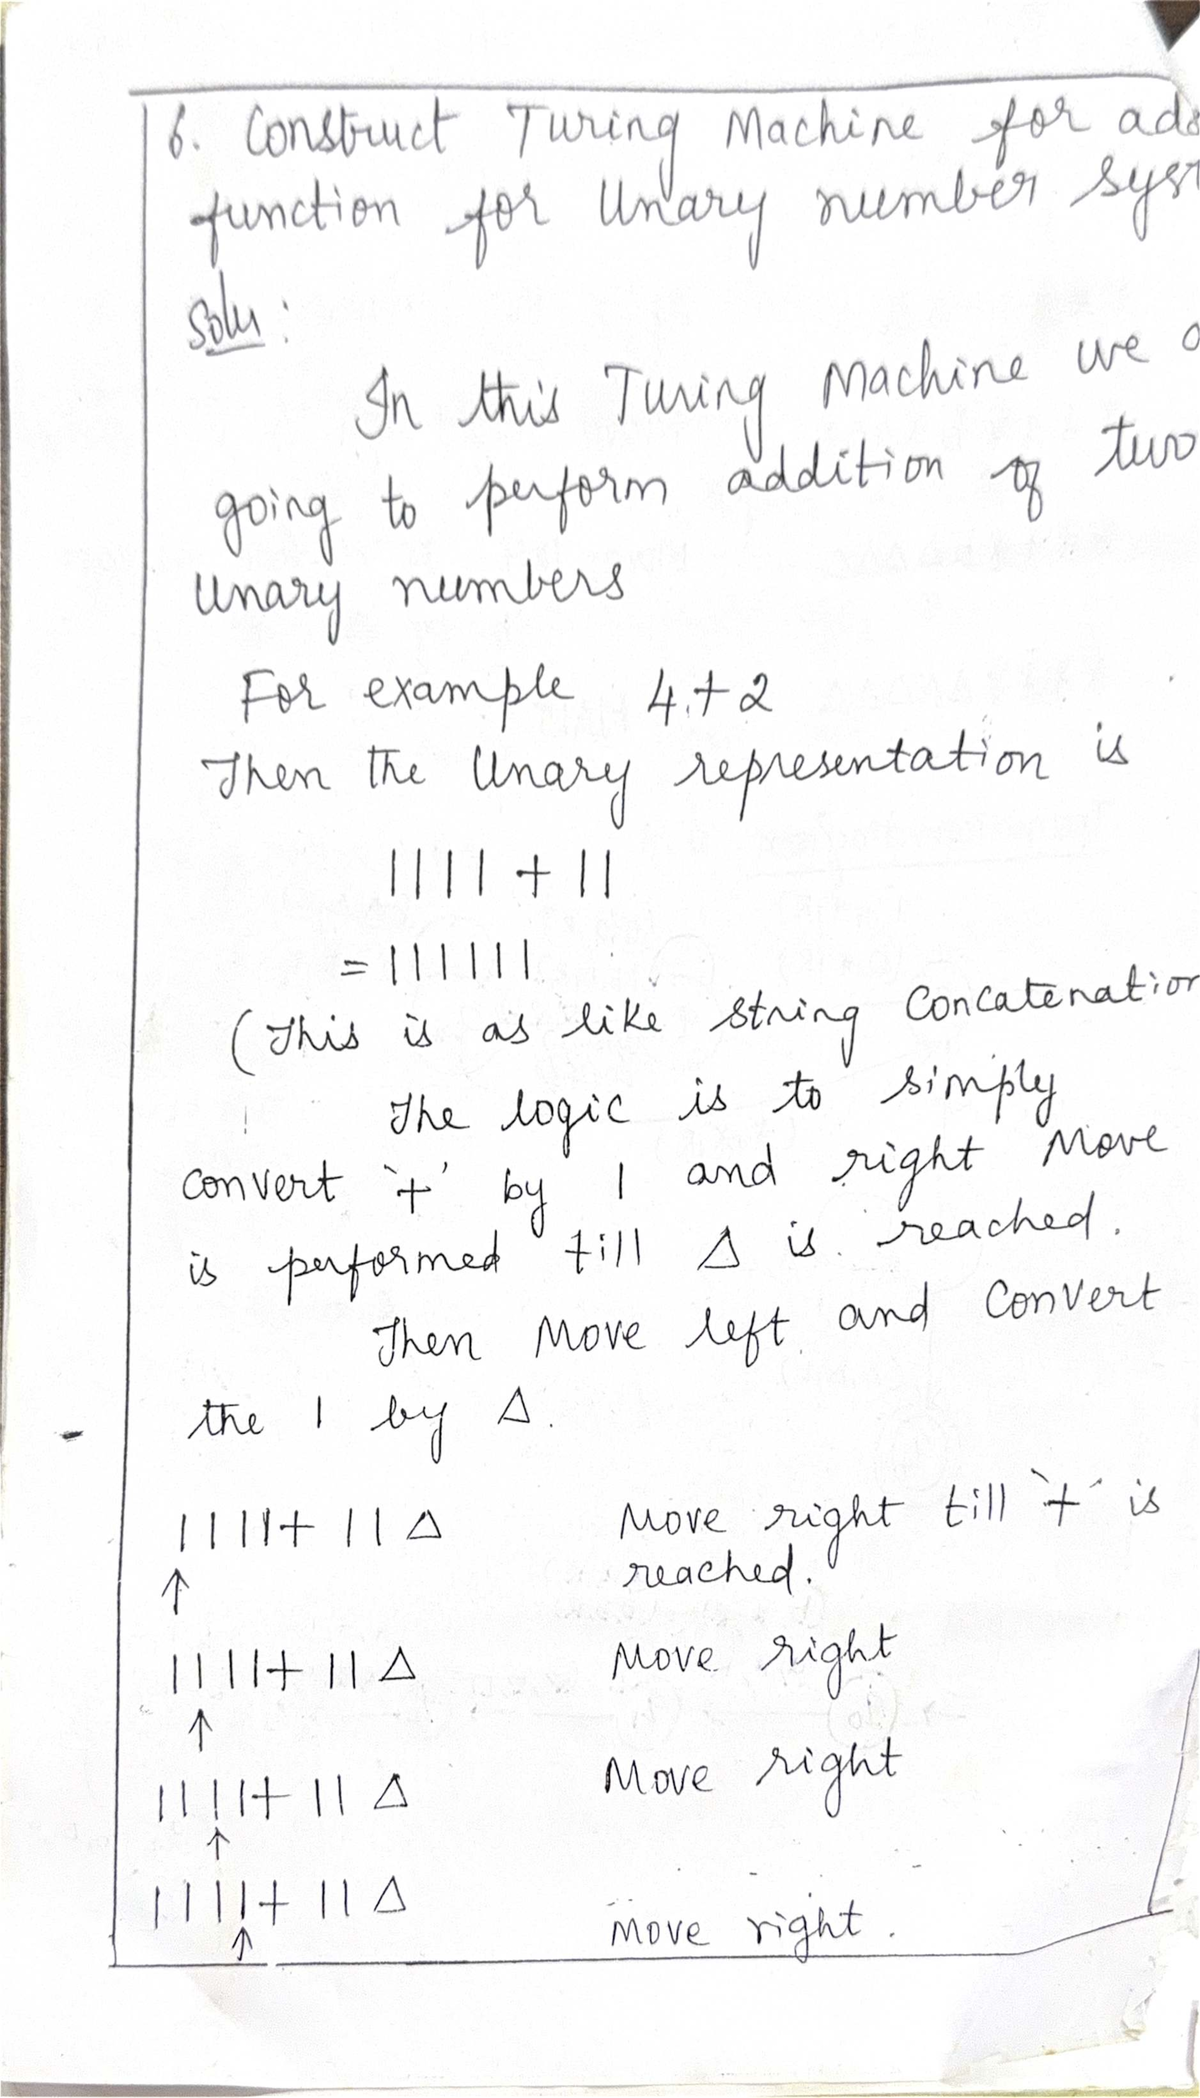 6. Construct Turing Machine for add
function for Unary number syst
Soln:
In this Turing Machine we a
going to perform addition of two
Unary numbers
For example 4+2
Then the Unary representation is
1111 + 11
= 111111
(This is as like string Concatenation
The logic is to simply
convert '+' by 1 and right Move
is performed till Δ is reached.
Then Move left and Convert
the 1 by Δ.
1111+ 11 Δ Move right till '+' is
reached.
↑
1111+ 11 Δ Move right
↑
1111+ 11 Δ Move right
↑
1111+ 11 Δ Move right.
↑